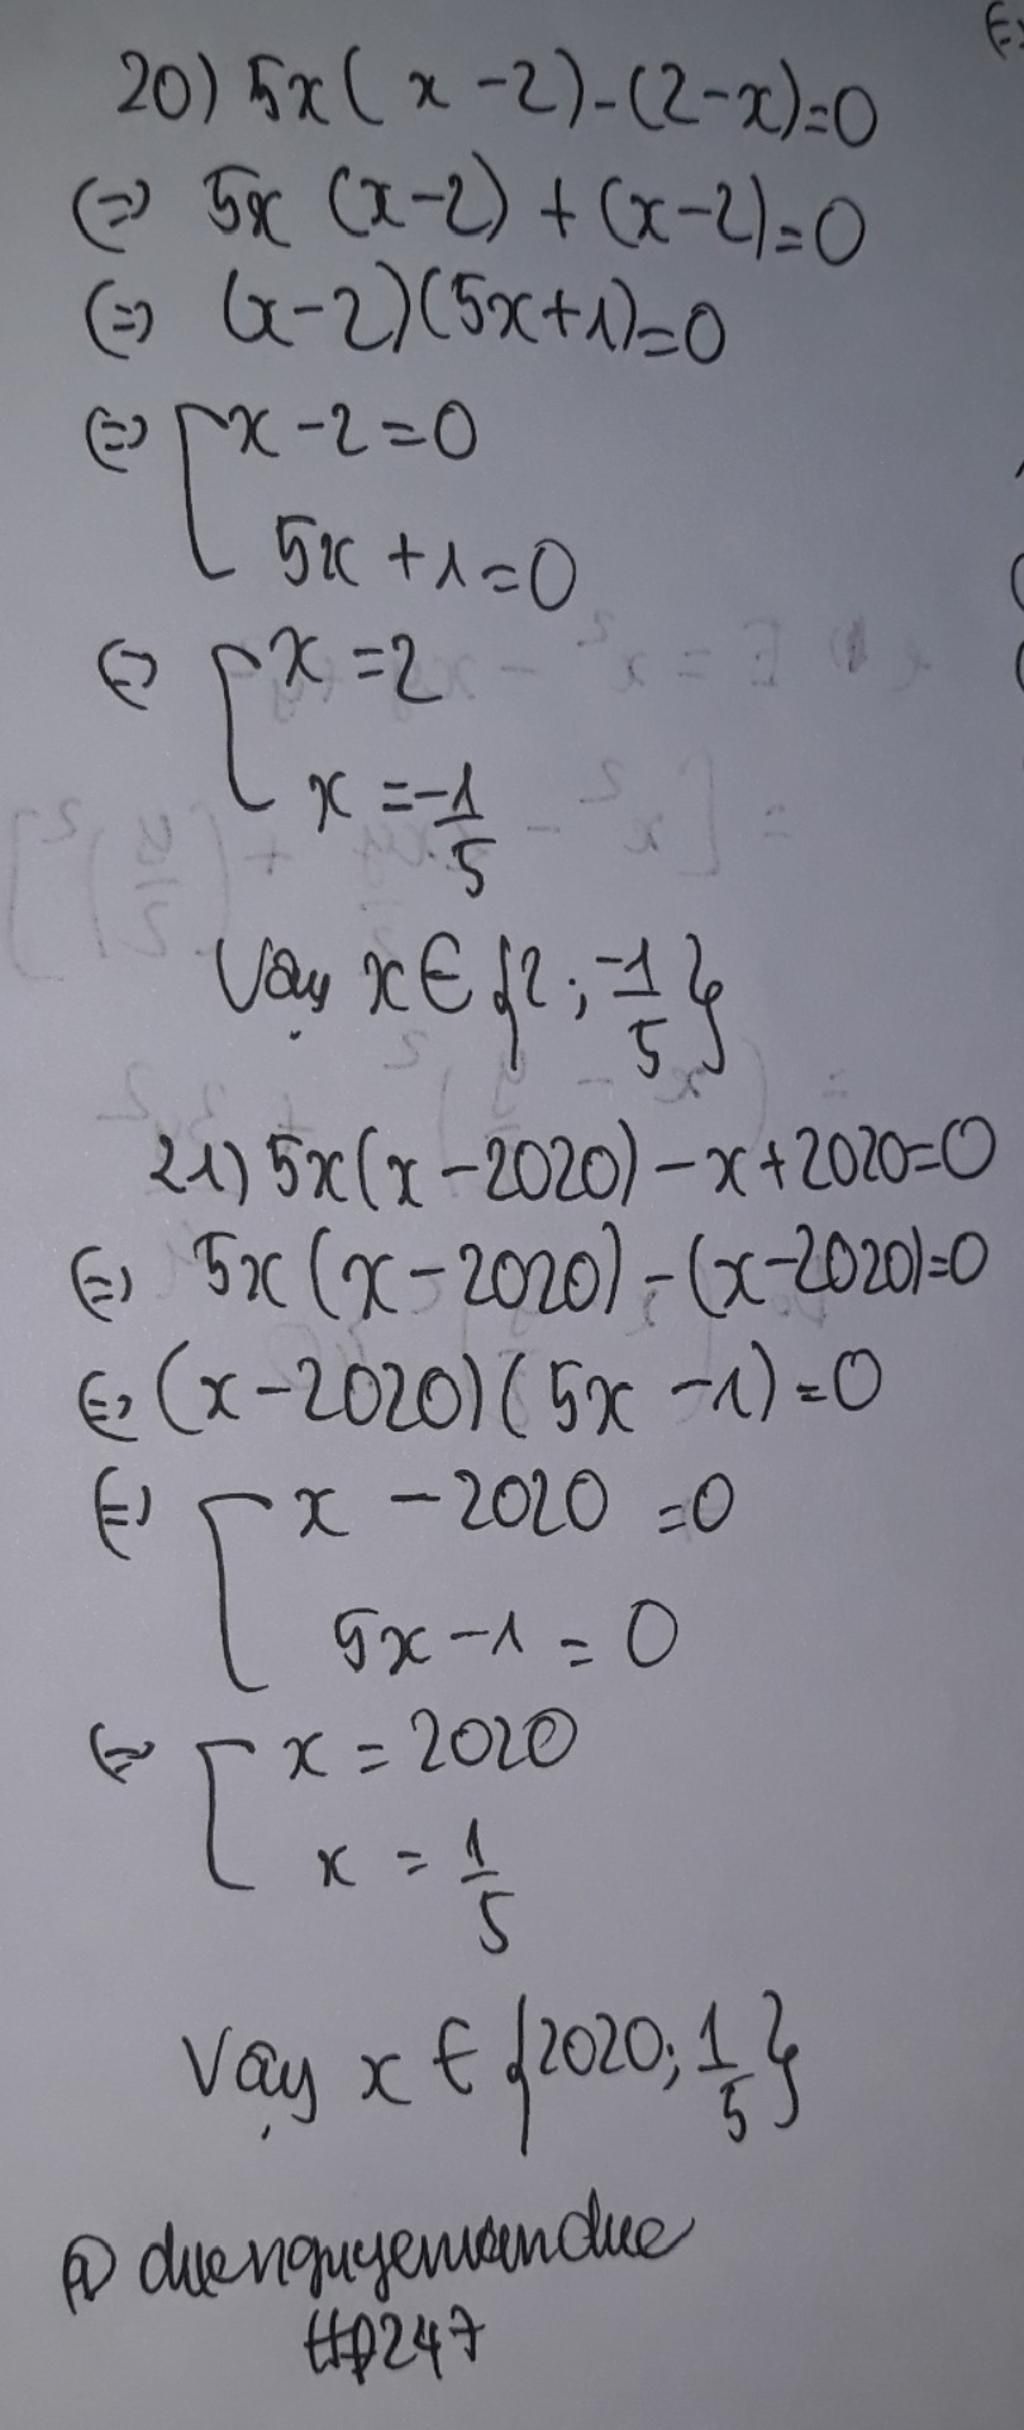 20) 5x(x-2)-(2-x)=0
(=) 5x (x-2) + (x-2)=0
(=) (x-2)(5x+1)=0
(=) [ x-2=0
5x+1=0
(=) [ x=2
x=-1/5
Vậy x∈{2; -1/5}
21) 5x(x-2020)-x+2020=0
(=) 5x(x-2020)-(x-2020)=0
(=) (x-2020)(5x-1)=0
(=) [ x-2020=0
5x-1=0
(=) [ x=2020
x=1/5
Vậy x∈{2020; 1/5}